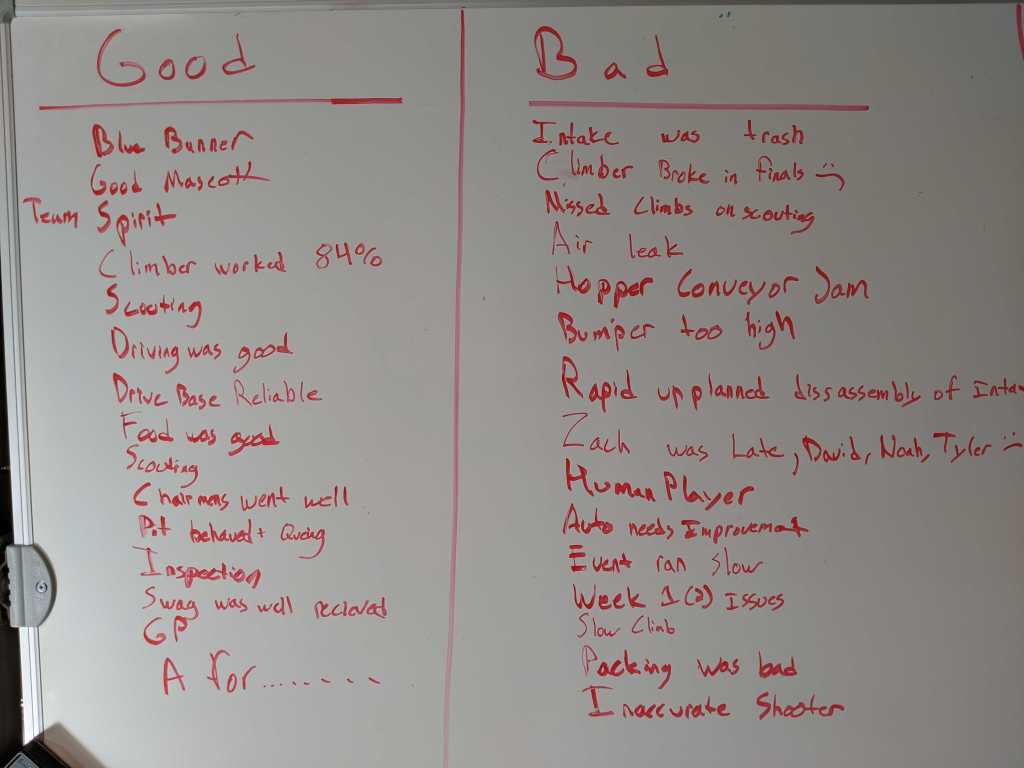 Good
Blue Banner
Good Mascott
Team Spirit
Climber worked 84%
Scouting
Driving was good
Drive Base Reliable
Food was good
Scouting
Chairmens went well
Pit behaved + Queing
Inspection
Swag was well recieved
GP
A for........
Bad
Intake was trash
Climber Broke in finals :(
Missed Climbs on scouting
Air leak
Hopper Conveyor Jam
Bumper too high
Rapid upplanned dissassembly of Inta
Zach was Late, David, Noah, Tyler :(
Human Player
Auto needs Improvement
Event ran Slow
Week 1(2) Issues
Slow Climb
Packing was bad
Inaccurate Shooter